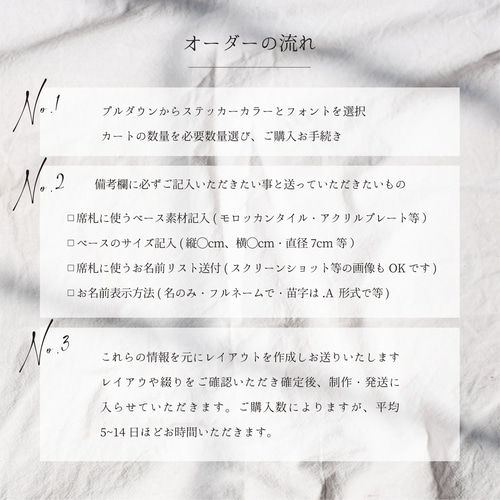 オーダーの流れ
No.1
プルダウンからステッカーカラーとフォントを選択
カートの数量を必要数量選び、ご購入お手続き
No.2
備考欄に必ずご記入いただきたい事と送っていただきたいもの
□席札に使うベース素材記入(モロッカンタイル・アクリルプレート等)
□ベースのサイズ記入(縦◯cm、横◯cm・直径7cm等)
□席札に使うお名前リスト送付(スクリーンショット等の画像もOKです)
□お名前表示方法(名のみ・フルネームで・苗字は.A 形式で等)
No.3
これらの情報を元にレイアウトを作成しお送りいたします
レイアウや綴りをご確認いただき確定後、制作・発送に
入らせていただきます。ご購入数によりますが、平均
5~14日ほどお時間いただきます。